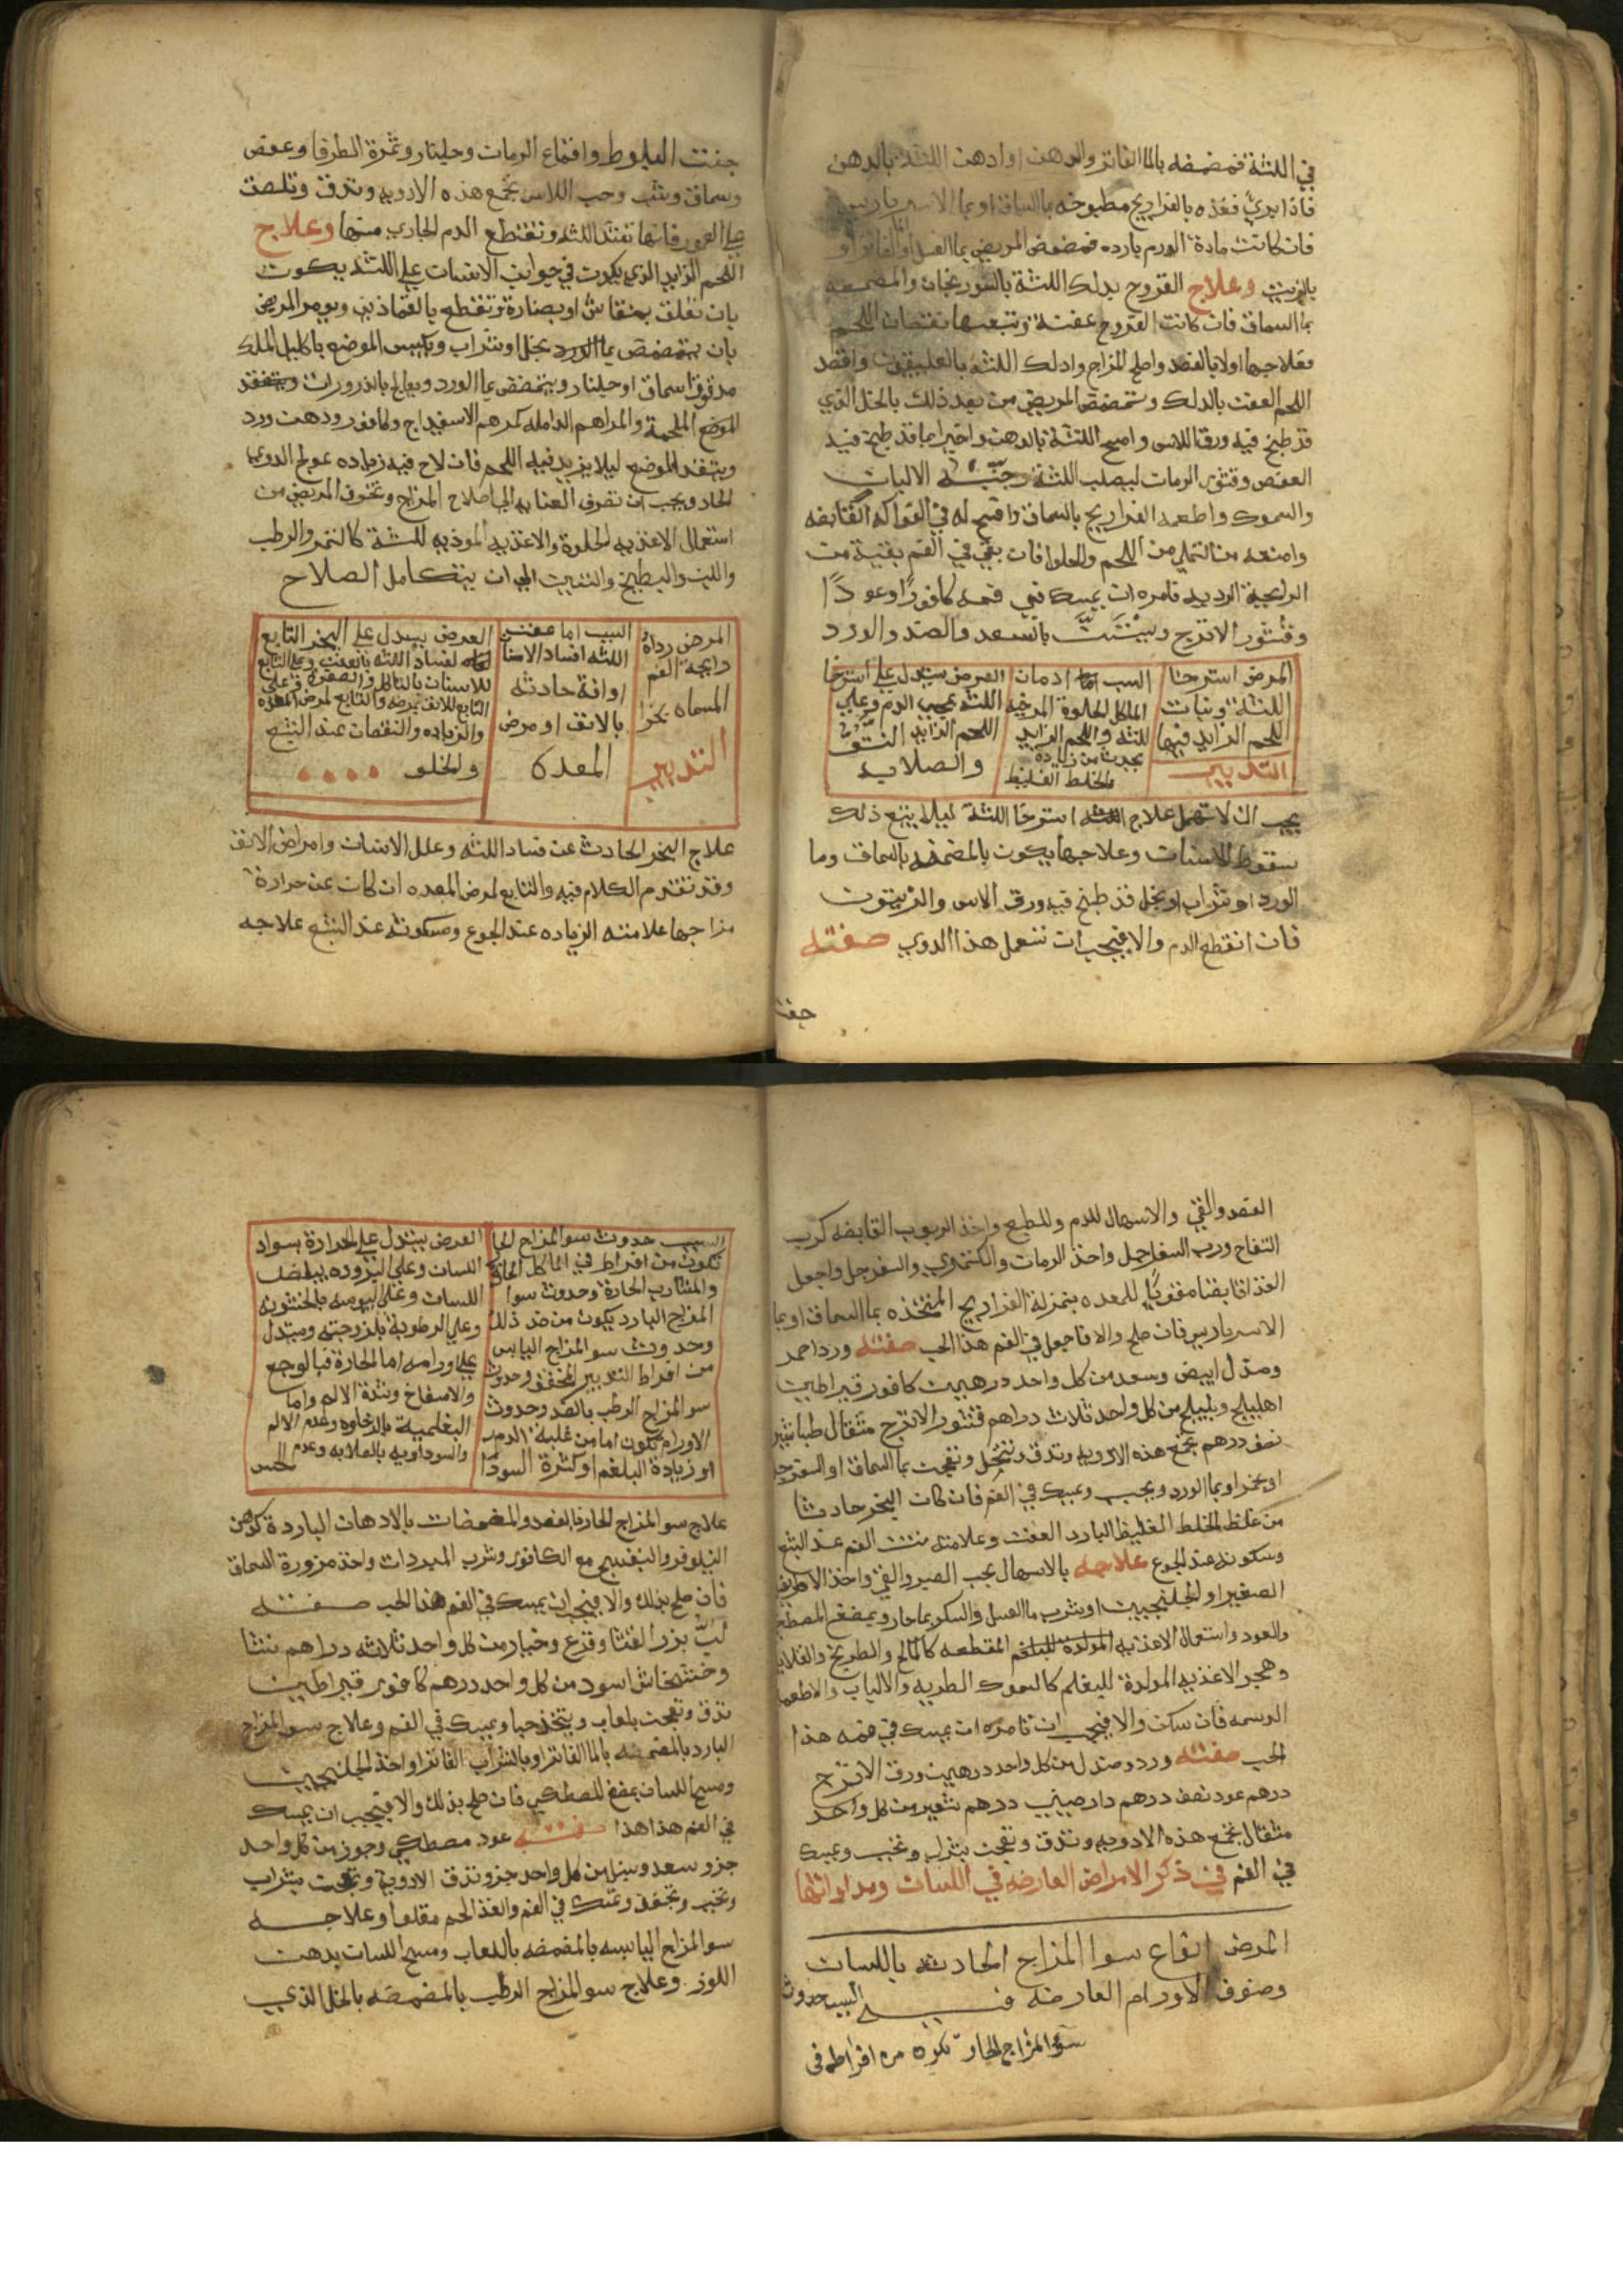 في اللثة فمضمضه بالماء الفاتر والدهن او ادهن اللثة بالدهن
فاذا برئ فغذه بالفراريج مطبوخه بماء السماق او بما الامير باريس
فان كانت مادة الورم بارده فمضمض المريض بما العسل او الماء الفاتر او
بالزيت وعلاج القروح بدلك اللثة بالسورنجان والمضمضه
بما السماق فان كانت القروح عفنة وتبعها نقصان اللحم
فعلاجها اولا بالفصد واصلح المزاج وادلك اللثه بالفلديقون واقصد
اللحم العفن بالدلك ويتمضمض المريض من بعد ذلك بالخل الذي
قد طبخ فيه ورق الاس وامسح اللثة بالدهن واخيرا بما قد طبخ فيه
العفص وقشور الرمان ليصلب اللثة وجنبه الالبان
والسموك واطعمه الفراريج بالسماق وافسح له في الفواكه القابضه
وامنعه من التملي من اللحم والحلوا فان بقي في الفم بقية من
الرايحة الرديه فامره ان يمسك في فمه كافورا وعودا
وقشور الاترج ويستن بالسعد والصندل والورد
المرض استرخا
اللثة ونبات
اللحم الزايد فيها
التدبير
السبب ادمان
الماكل الحلوة المرخيه
للثه واللحم الزايد
يحدث من زيادة
الخلط الغليظ
العرض يستدل على استرخا
اللثه بمجي الدم وعلى
اللحم الزايد النتو
والصلابه
يجب ان لا تهمل علاج استرخا اللثة ليلا يتبع ذلك
سقوط الاسنان وعلاجها يكون بالمضمضه بالسماق وما
الورد او شراب او بخل قد طبخ فيه ورق الاس والزيتون
فان انقطع الدم والا فيجب ان تستعمل هذا الدوي صفته
جفت
جفت البلوط واقماع الرمان وجلنار وثمرة الطرفا وعفص
وسماق وشب وحب الاس تجمع هذه الادويه وتدق وتلصق
على العمور فانها تشد اللثه وتقطع الدم الجاري منها وعلاج
اللحم الزايد الذي يكون في جوانب الاسنان على اللثه يكون
بان تعلق بمنقاش او بصنارة وتقطع بالقمادين ويومر المريض
بان يتمضمض بما الورد بخل او شراب ويكبس الموضع باكليل الملك
مدقوقا سماق او جلنار ويتمضمض بما الورد ويعالج بالذرورات ويتفقد
الموضع الملحمة والمراهم الدامله كمرهم الاسفيداج وكافور ودهن ورد
ويتفقد الموضع ليلا يزيد فيه اللحم فان لاح فيه زياده عولج الدوي
الحاد ويجب ان تصرف العنايه الى اصلاح المزاج وتخوف المريض من
استعمال الاغذيه الحلوة والاغذيه الموذيه للثة كالتمر والرطب
واللبن والبطيخ والتين الى ان يتكامل الصلاح
المرض رداة
رايحة الفم
المسماه بخرا
التدبير
السبب اما عفن
اللثه او فساد الاسنا
او افة حادثه
بالانف او مرض
المعده
العرض يستدل على البخر التابع
لفساد اللثه بالعفن وعلى التابع
للاسنان بالتاكل والصفرة وعلى
التابع للانف بمرضه والتابع لمرض المعده
والزياده والنقصان عند الشبع
والخلو
علاج البخر الحادث عن فساد اللثه وعلل الاسنان وامراض الانف
وقد تقدم الكلام فيه والتابع لمرض المعده ان كان عن حرارة
مزاجها علامته الزياده عند الجوع وسكونه عند الشبع علاجه
الفصد والقي والاسهال للدم وللطبع واخذ الربوب القابضه كرب
التفاح ورب السفرجل واخذ الرمان والكمثري والسفرجل واجعل
الغذا قابضا مقويا للمعده بمنزلة الفراريج المتخذه بما السماق او بما
الامير باريس فان صلح والا فاجعل في الفم هذا الحب صفته ورد احمر
وصندل ابيض وسعد من كل واحد درهمين كافور قيراطين
اهليلج وبليلج من كل واحد ثلاث دراهم قشور الاترج مثقال طباشير
نصف درهم تجمع هذه الادويه وتدق وتنخل وتعجن بما السماق او السفرجل
او بخمر او بما الورد ويحبب ويمسك في الفم فان كان البخر حادثا
من غلظ الخلط الغليظ البارد العفن وعلامته نتن الفم عند الشبع
وسكونه عند الجوع علاجه بالاسهال بحب الصبر والقي واخذ الاطريفل
الصغير او الجلنجبين او يشرب ما العسل والسكر بما حار ويمضغ المصطكي
والعود واستعمال الاغذيه المولده للبلغم المقطعه كالمالح والطريخ والقلايا
وهجر الاغذيه المولدة للبلغم كالسموك الطريه والالبان والاطعمه
الدسمه فان سكن والا فيجب ان تامره ان يمسك في فمه هذا
الحب صفته ورد وصندل من كل واحد درهمين ورق الاترج
درهم عود نصف درهم دارصيني درهم من كل واحد
مثقال تجمع هذه الادويه وتدق وتعجن بشراب وتحبب ويمسك
في الفم في ذكر الامراض العارضه في اللسان ومداواتها
المرض انواع سوا المزاج الحادثه باللسان
وصنوف الاورام العارضه فيه السبب حدوث
سوء المزاج الحار تكون من افراط في
السبب حدوث سوالمزاج الحار
تكون من افراط في الماكل الحارة
والمشارب الحارة وحدوث سوا
المزاج البارد يكون من ضد ذلك
وحدوث سوالمزاج اليابس
من افراط التدبير المجفف وحدوث
سوالمزاج الرطب بالضد وحدوث
الاورام تكون اما من غلبة الدم
او زيادة البلغم او كثرة السودا
العرض يستدل على الحرارة بسواد
اللسان وعلى البروده ببياض
اللسان وعلى اليبوسه بالخشونه
وعلى الرطوبة بلزوجته ويستدل
على اورامه اما الحارة فبالوجع
والانتفاخ وشدة الالم واما
البلغمية بالرخاوه وعدم الالم
والسوداويه بالصلابه وعدم الحس
علاج سوالمزاج الحار بالفصد والمضمضات بالادهان الباردة كدهن
النيلوفر والبنفسج مع الكافور وشرب المبردات واخذ مزورة السماق
فان صلح بذلك والا فيجب ان يمسك في الفم هذا الحب صفته
لب بزر القثا وقرع وخيار من كل واحد ثلاثه دراهم نشا
وخشخاش اسود من كل واحد درهم كافور قيراطين
تدق وتعجن بلعاب ويتخذ حبا ويمسك في الفم وعلاج سوالمزاج
البارد بالمضمضه بالماء الفاتر او بالشراب الفاتر او اخذ الجلنجبين
ومسح اللسان بمضغ المصطكي فان صلح بذلك والا فيجب ان يمسك
في الفم هذا هذا صفته عود مصطكي وجوز من كل واحد
جزو سعد وسنبل من كل واحد جزو تدق الادوية وتعجن بشراب
وتحبب وتجفف وتمسك في الفم والغذا لحم مقلوا وعلاجه
سوالمزاج اليابسه بالمضمضه باللعاب ومسح اللسان بدهن
اللوز وعلاج سوالمزاج الرطب بالمضمضه بالخل الذي